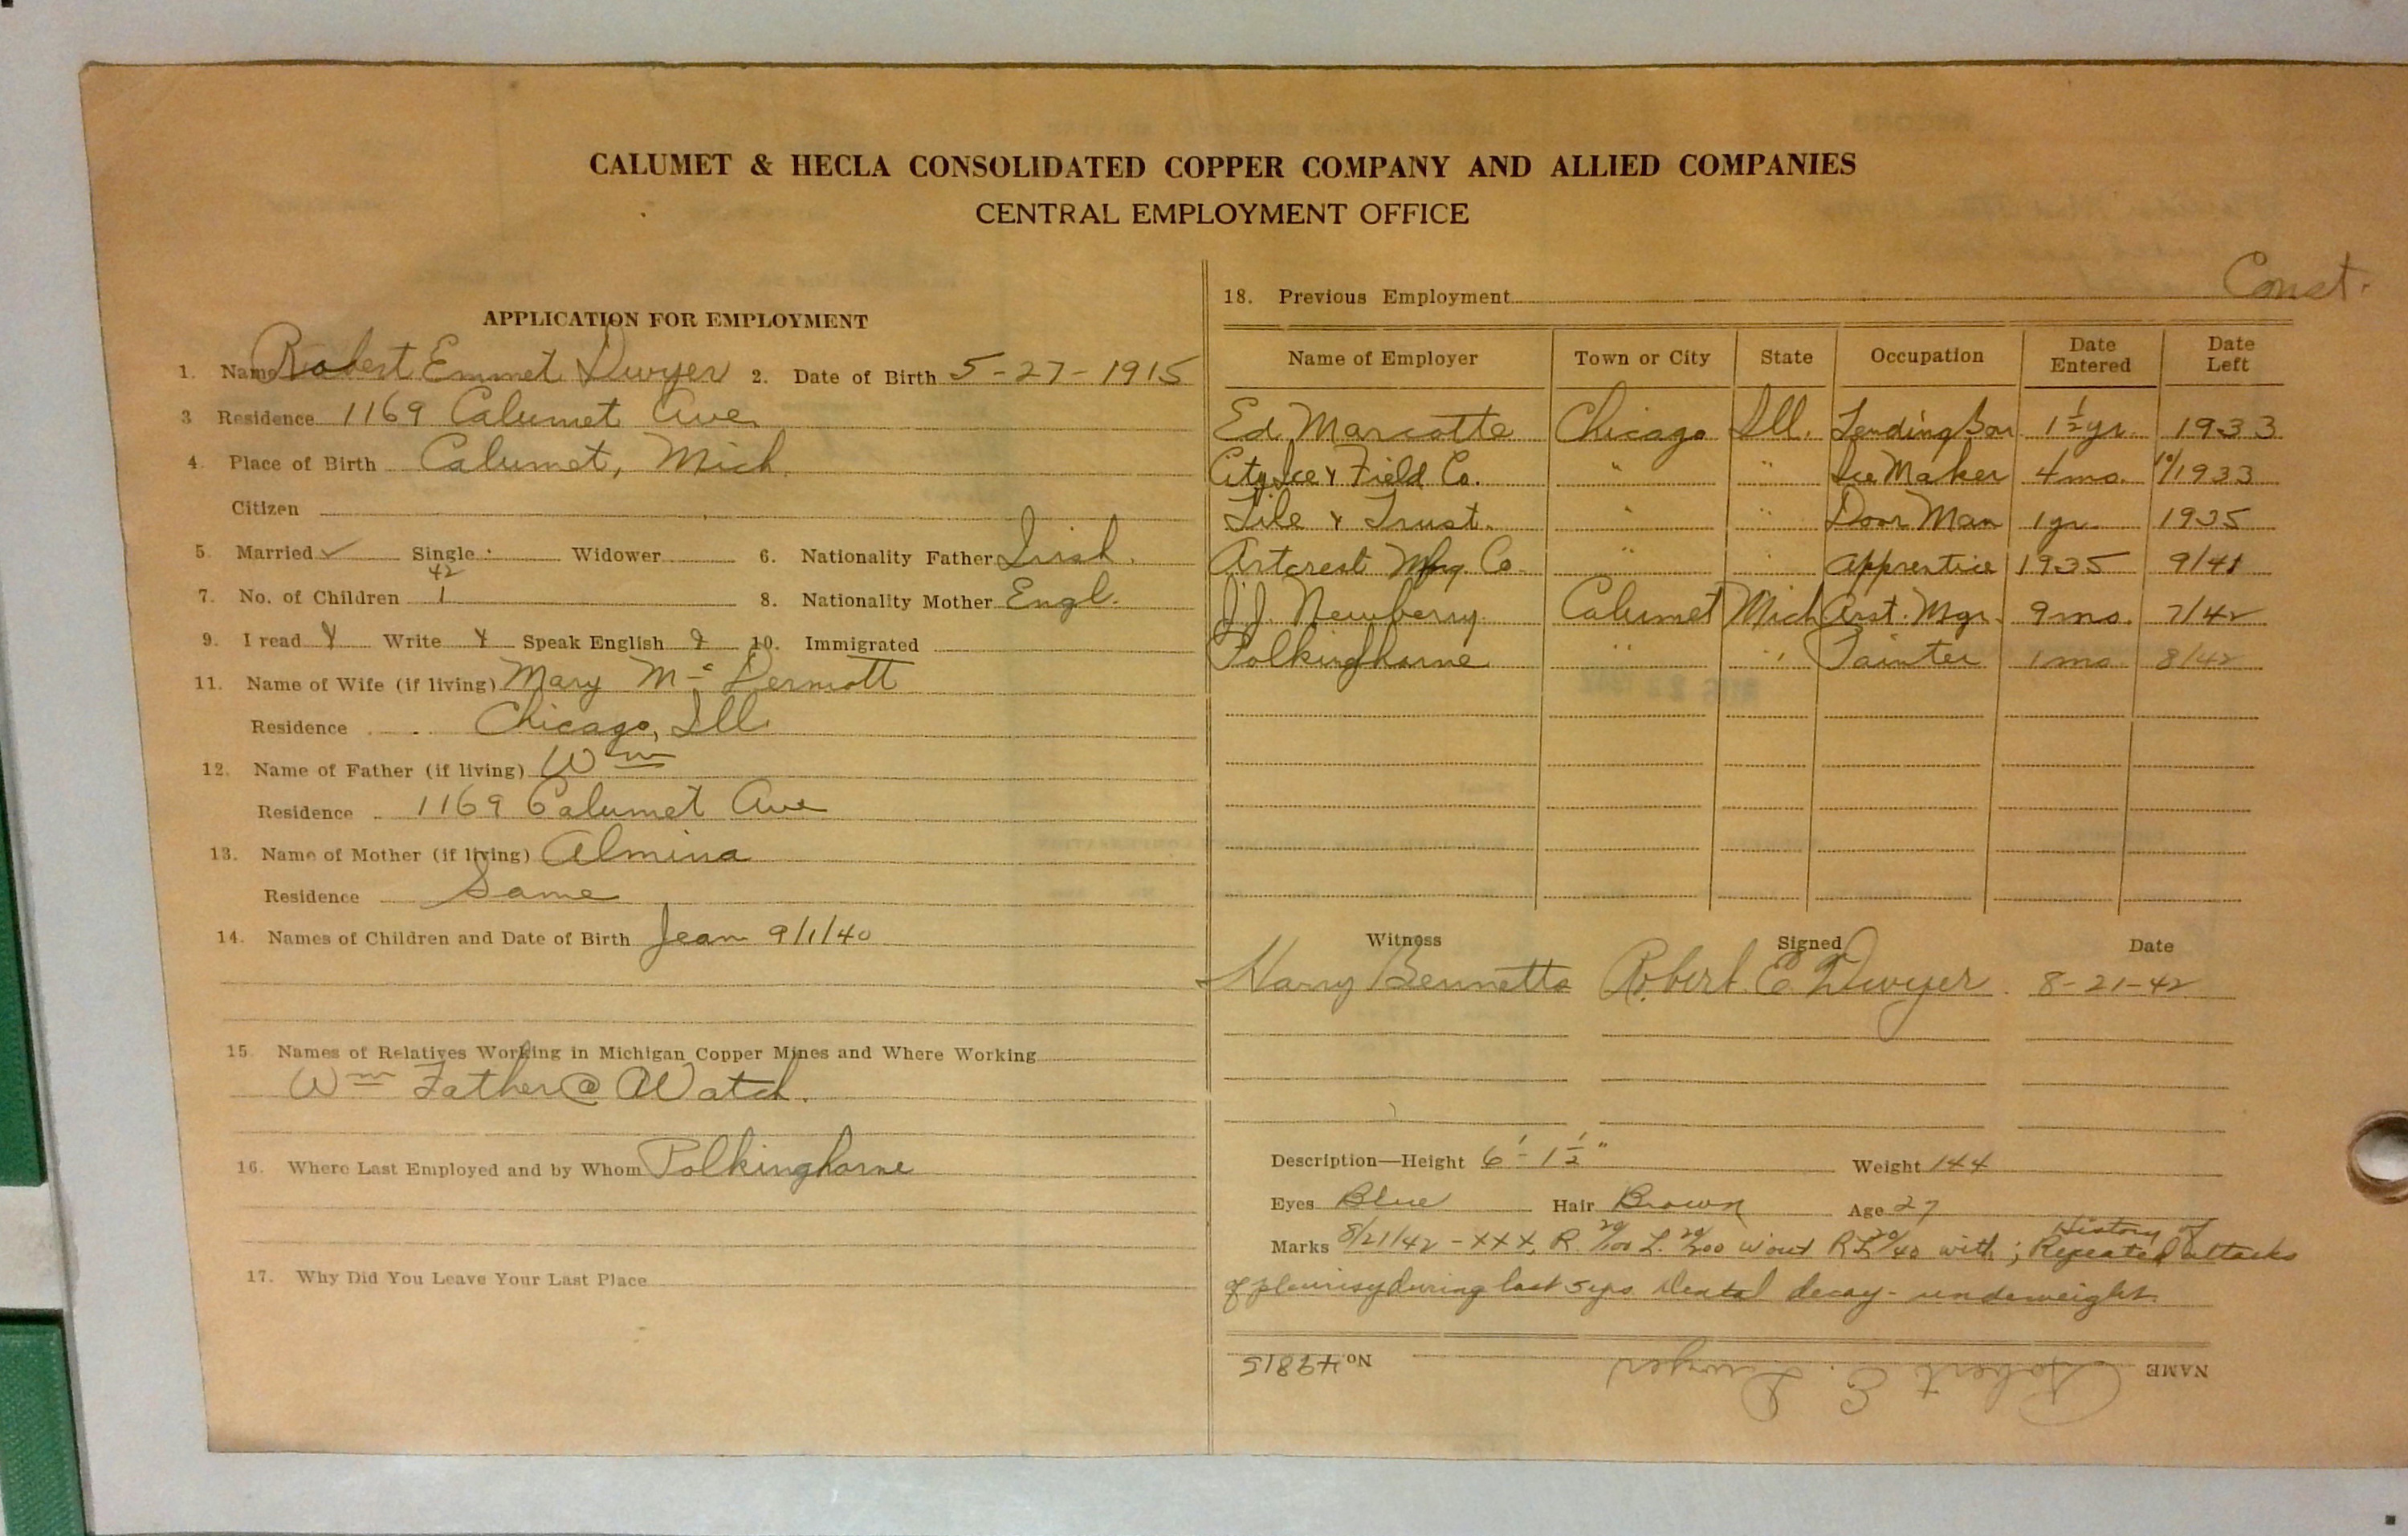 CALUMET & HECLA CONSOLIDATED COPPER COMPANY AND ALLIED COMPANIES
CENTRAL EMPLOYMENT OFFICE
APPLICATION FOR EMPLOYMENT
1. Name Robert Emmet Dwyer 2. Date of Birth 5-27-1915
3 Residence 1169 Calumet Ave.
4. Place of Birth Calumet, Mich.
Citizen
5. Married ✓ Single Widower 6. Nationality Father Irish.
42
7. No. of Children 1 8. Nationality Mother Engl.
9. I read Y Write Y Speak English Y 10. Immigrated
11. Name of Wife (if living) Mary Mc Dermott
Residence Chicago, Ill.
12. Name of Father (if living) Wm
Residence 1169 Calumet Ave
13. Name of Mother (if living) Almina
Residence Same
14. Names of Children and Date of Birth Jean 9/1/40
15. Names of Relatives Working in Michigan Copper Mines and Where Working
Wm Father @ Watch.
16. Where Last Employed and by Whom Polkinghorne
17. Why Did You Leave Your Last Place
Const.
18. Previous Employment
Name of Employer Town or City State Occupation Date Entered Date Left
Ed Marcotte Chicago Ill. Tending Bar 1 1/2 yr. 1933
City Ice & Field Co. " " Ice Maker 4 mo. 10/1933
Tile & Trust. " " Door Man 1 yr 1935
Artcrest Mfg. Co. " " Apprentice 1935 9/41
J.J. Newberry Calumet Mich Asst. Mgr. 9 mo. 7/42
Polkinghorne " " Painter 1 mo 8/42
Witness Signed Date
Harry Bennetts Robert E. Dwyer 8-21-42
Description—Height 6'-1 1/2" Weight 144
Eyes Blue Hair Brown Age 27
Marks 8/21/42 - XXX, R. 20/100 L. 20/200 w'out R L 20/40 with; History of Repeated attacks
of pleurisy during last 5 yrs. Dental decay - underweight.
NAME Robert E. Dwyer No 49815